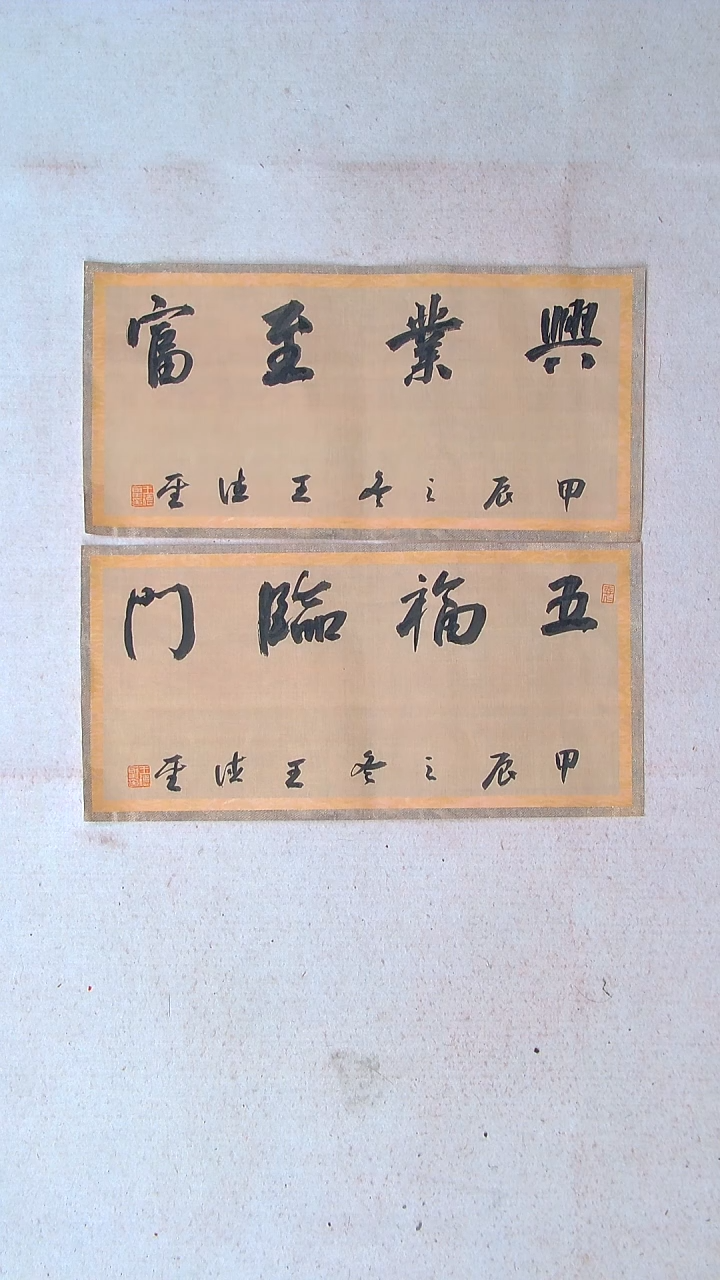 興業至富
甲辰之冬王佳孕
五福臨門
甲辰之冬王佳孕